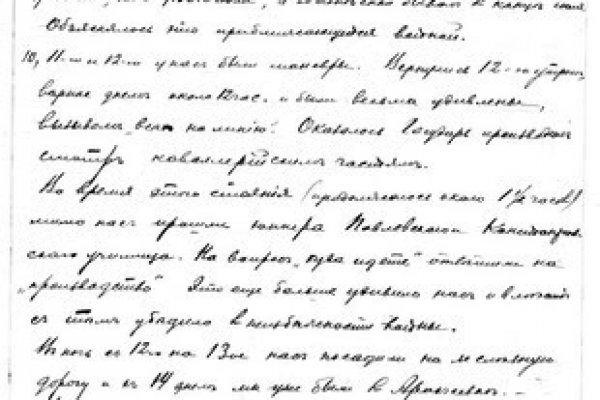 Объяснялось это приближающейся войной.
10, 11-го и 12-го у нас были маневры. Вернулись 12-го утром,
вернее днем около 12 час. и были весьма удивлены,
вызовом "всех на линию". Оказалось Государь производил
смотр кавалерийским частям.
Во время этого стояния (продолжалось около 1½ часов)
мимо нас прошли юнкера Павловского
училища. На вопрос "куда идете" ответили на
"производство" Это еще больше удивило нас и
с тем убедило в неизбежности войны.
В ночь с 12го на 13ое нас посадили на железную
дорогу и к 14 днем мы уже были в